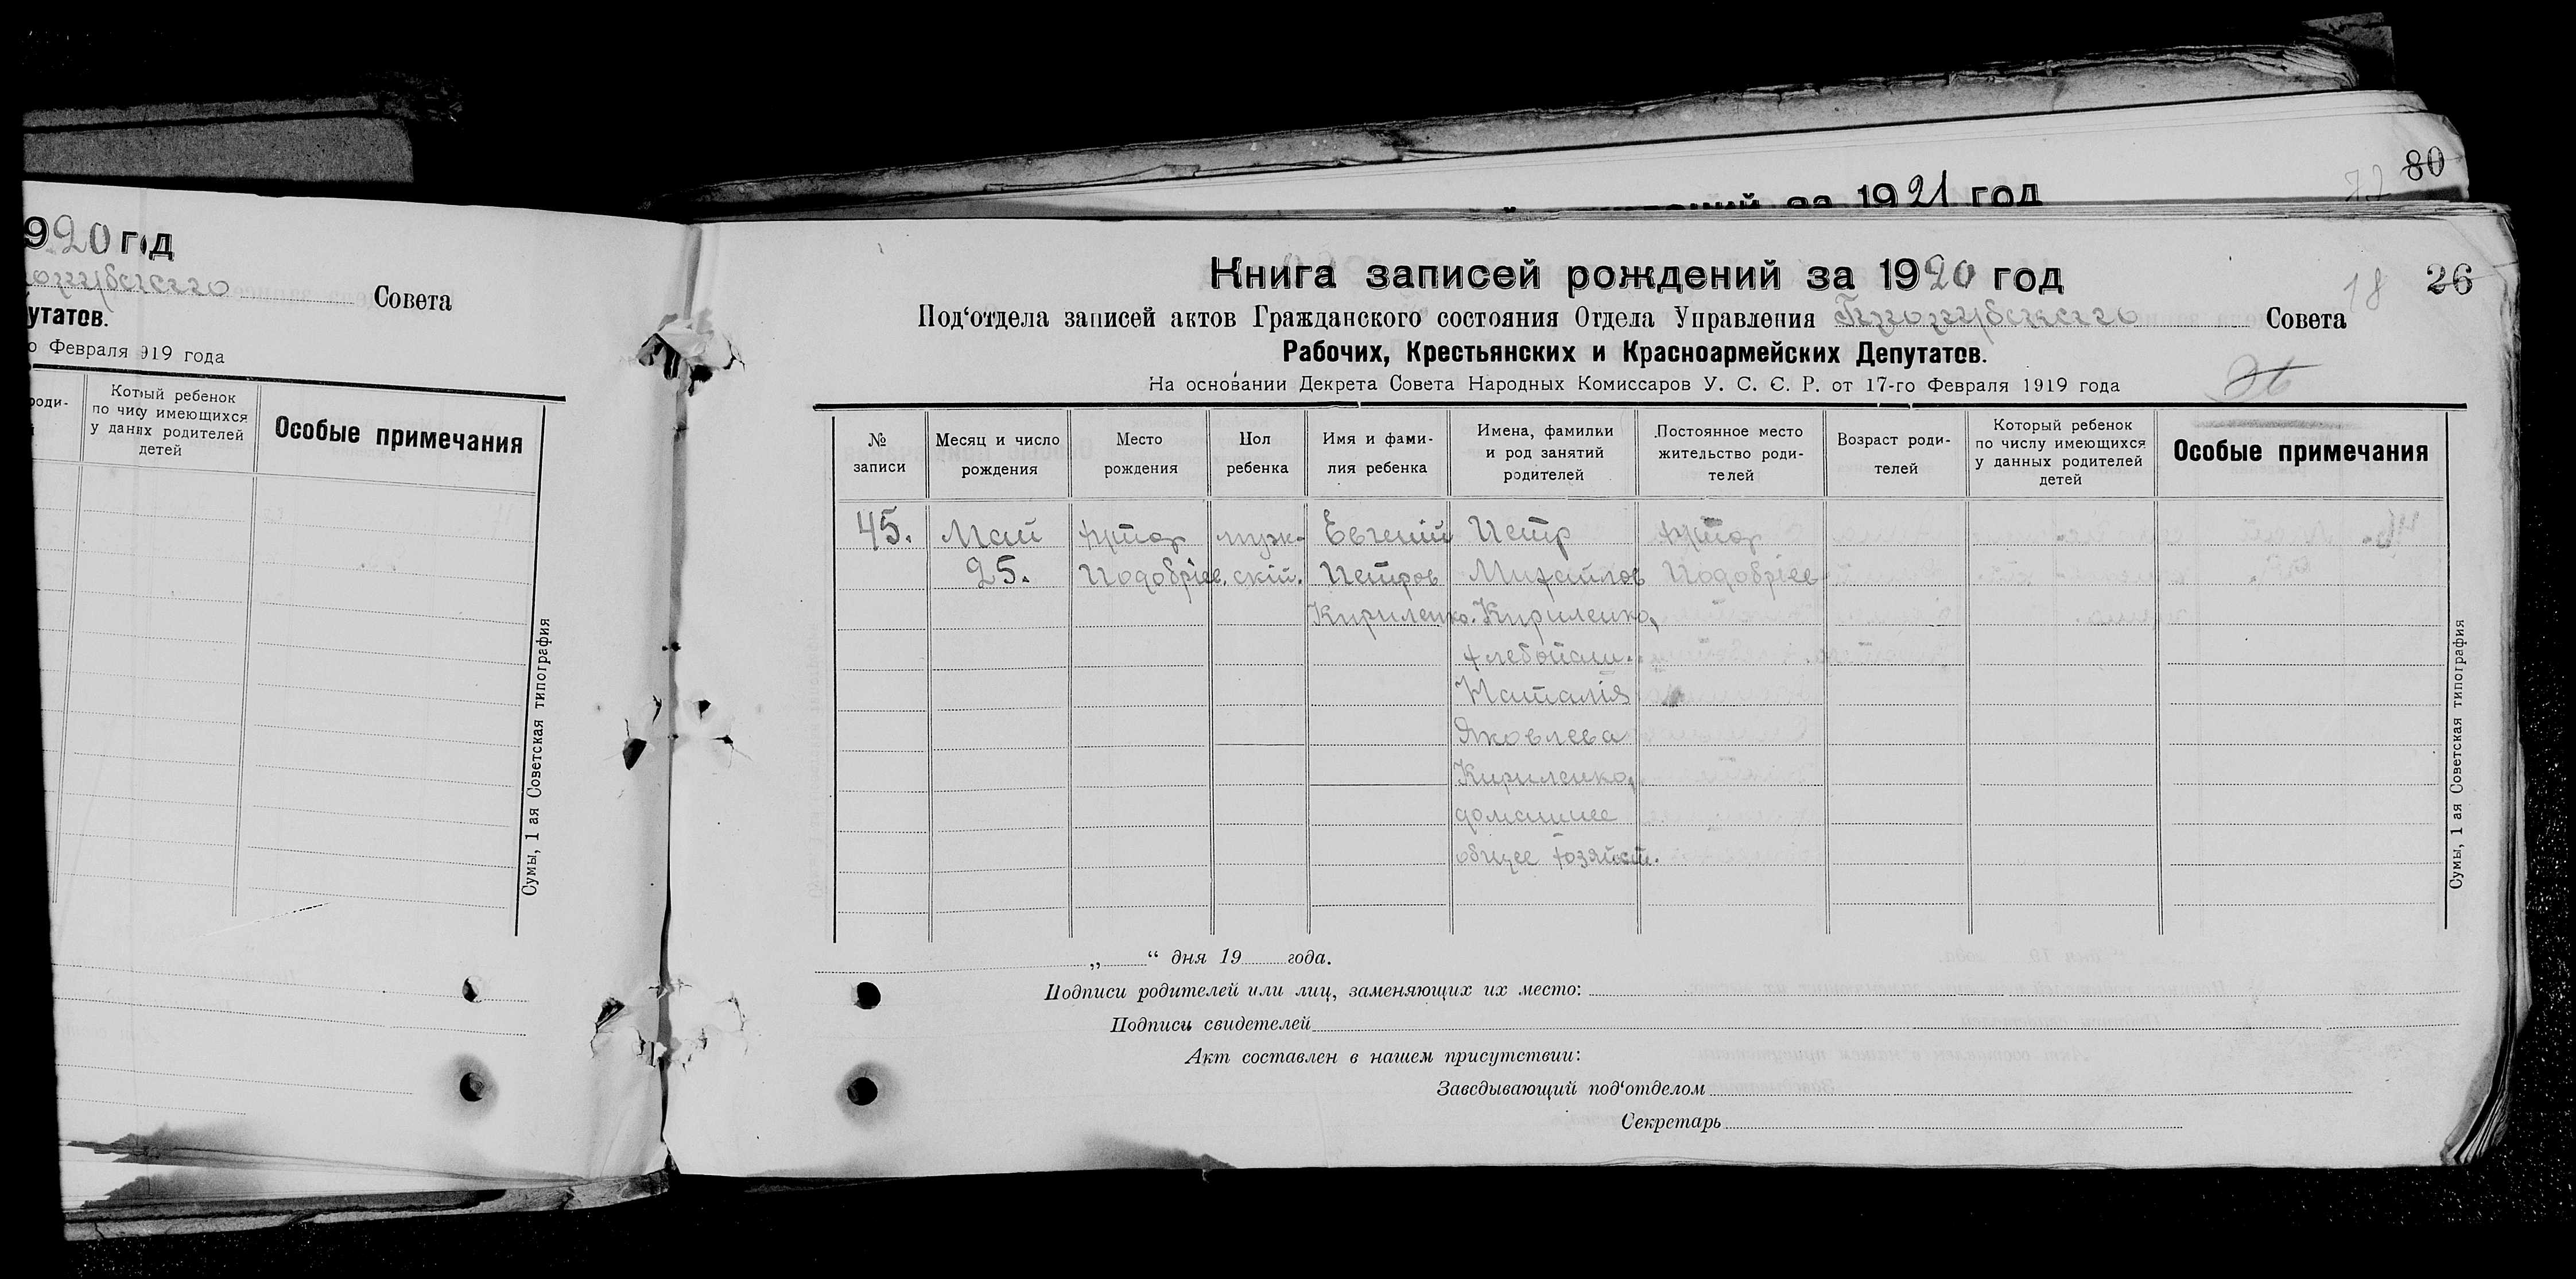 80
за 1921 год
920 год
Совета
утатов.
о Февраля 919 года
Особые примечания
по числу имеющихся
у данных родителей
детей
Сумы, 1 ая Советская типография
Книга записей рождений за 1920 год
26
18
Под‘отдела записей актов Гражданского состояния Отдела Управления Совета
Рабочих, Крестьянских и Красноармейских Депутатов.
На основании Декрета Совета Народных Комиссаров У. С. С. Р. от 17-го Февраля 1919 года
26
№ записи
Месяц и число рождения
Место рождения
Пол ребенка
Имя и фами- лия ребенка
Имена, фамилии и род занятий родителей
Постоянное место жительство роди- телей
Возраст роди- телей
Который ребенок по числу имеющихся у данных родителей детей
Особые примечания
45. Май хутор муж- Евгеній Петр хутор
25. Подобріев. скій. Петров Михайлов Подобріев
Кириленко. Кириленко,
хлебопаш.
Наталія
Яковлева
Кириленко,
домашнее
общее хозяйст.
Сумы, 1 ая Советская типография
„ “ дня 19 года.
Подписи родителей или лиц, заменяющих их место:
Подписи свидетелей
Акт составлен в нашем присутствии:
Заведывающий под‘отделом
Секретарь